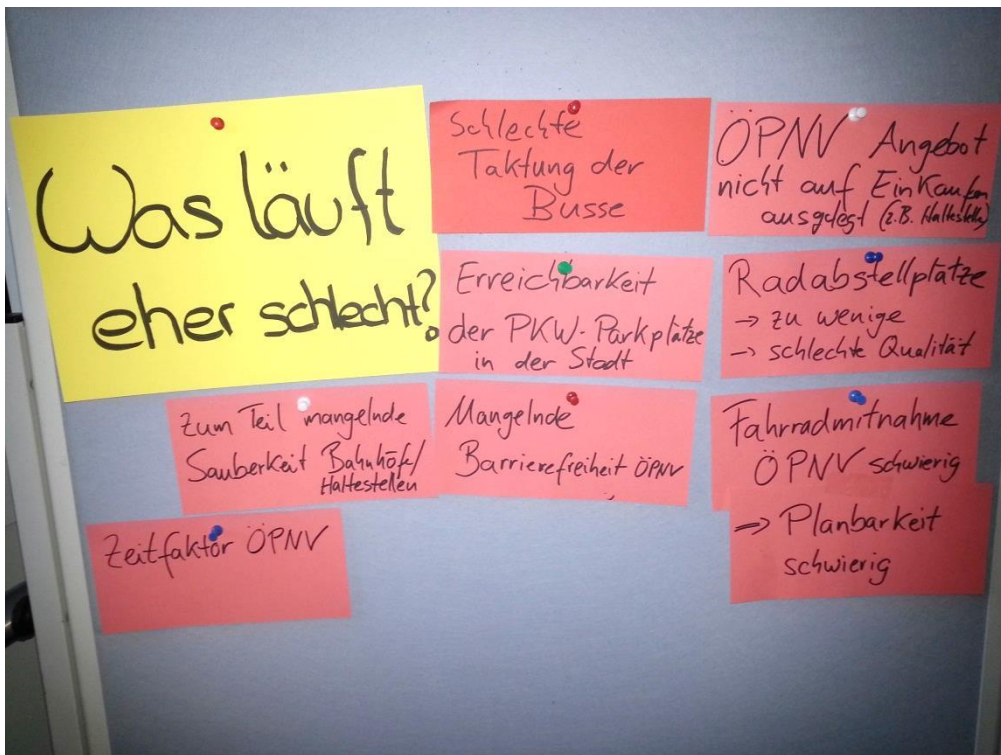 Was läuft
eher schlecht?
Schlechte
Taktung der
Busse
ÖPNV Angebot
nicht auf Einkaufen
ausgelegt (z.B. Haltestelle)
Erreichbarkeit
der PKW-Parkplätze
in der Stadt
Radabstellplätze
→ zu wenige
→ schlechte Qualität
Zum Teil mangelnde
Sauberkeit Bahnhöfe/
Haltestellen
Mangelnde
Barrierefreiheit ÖPNV
Fahrradmitnahme
ÖPNV schwierig
⇒ Planbarkeit
schwierig
Zeitfaktor ÖPNV